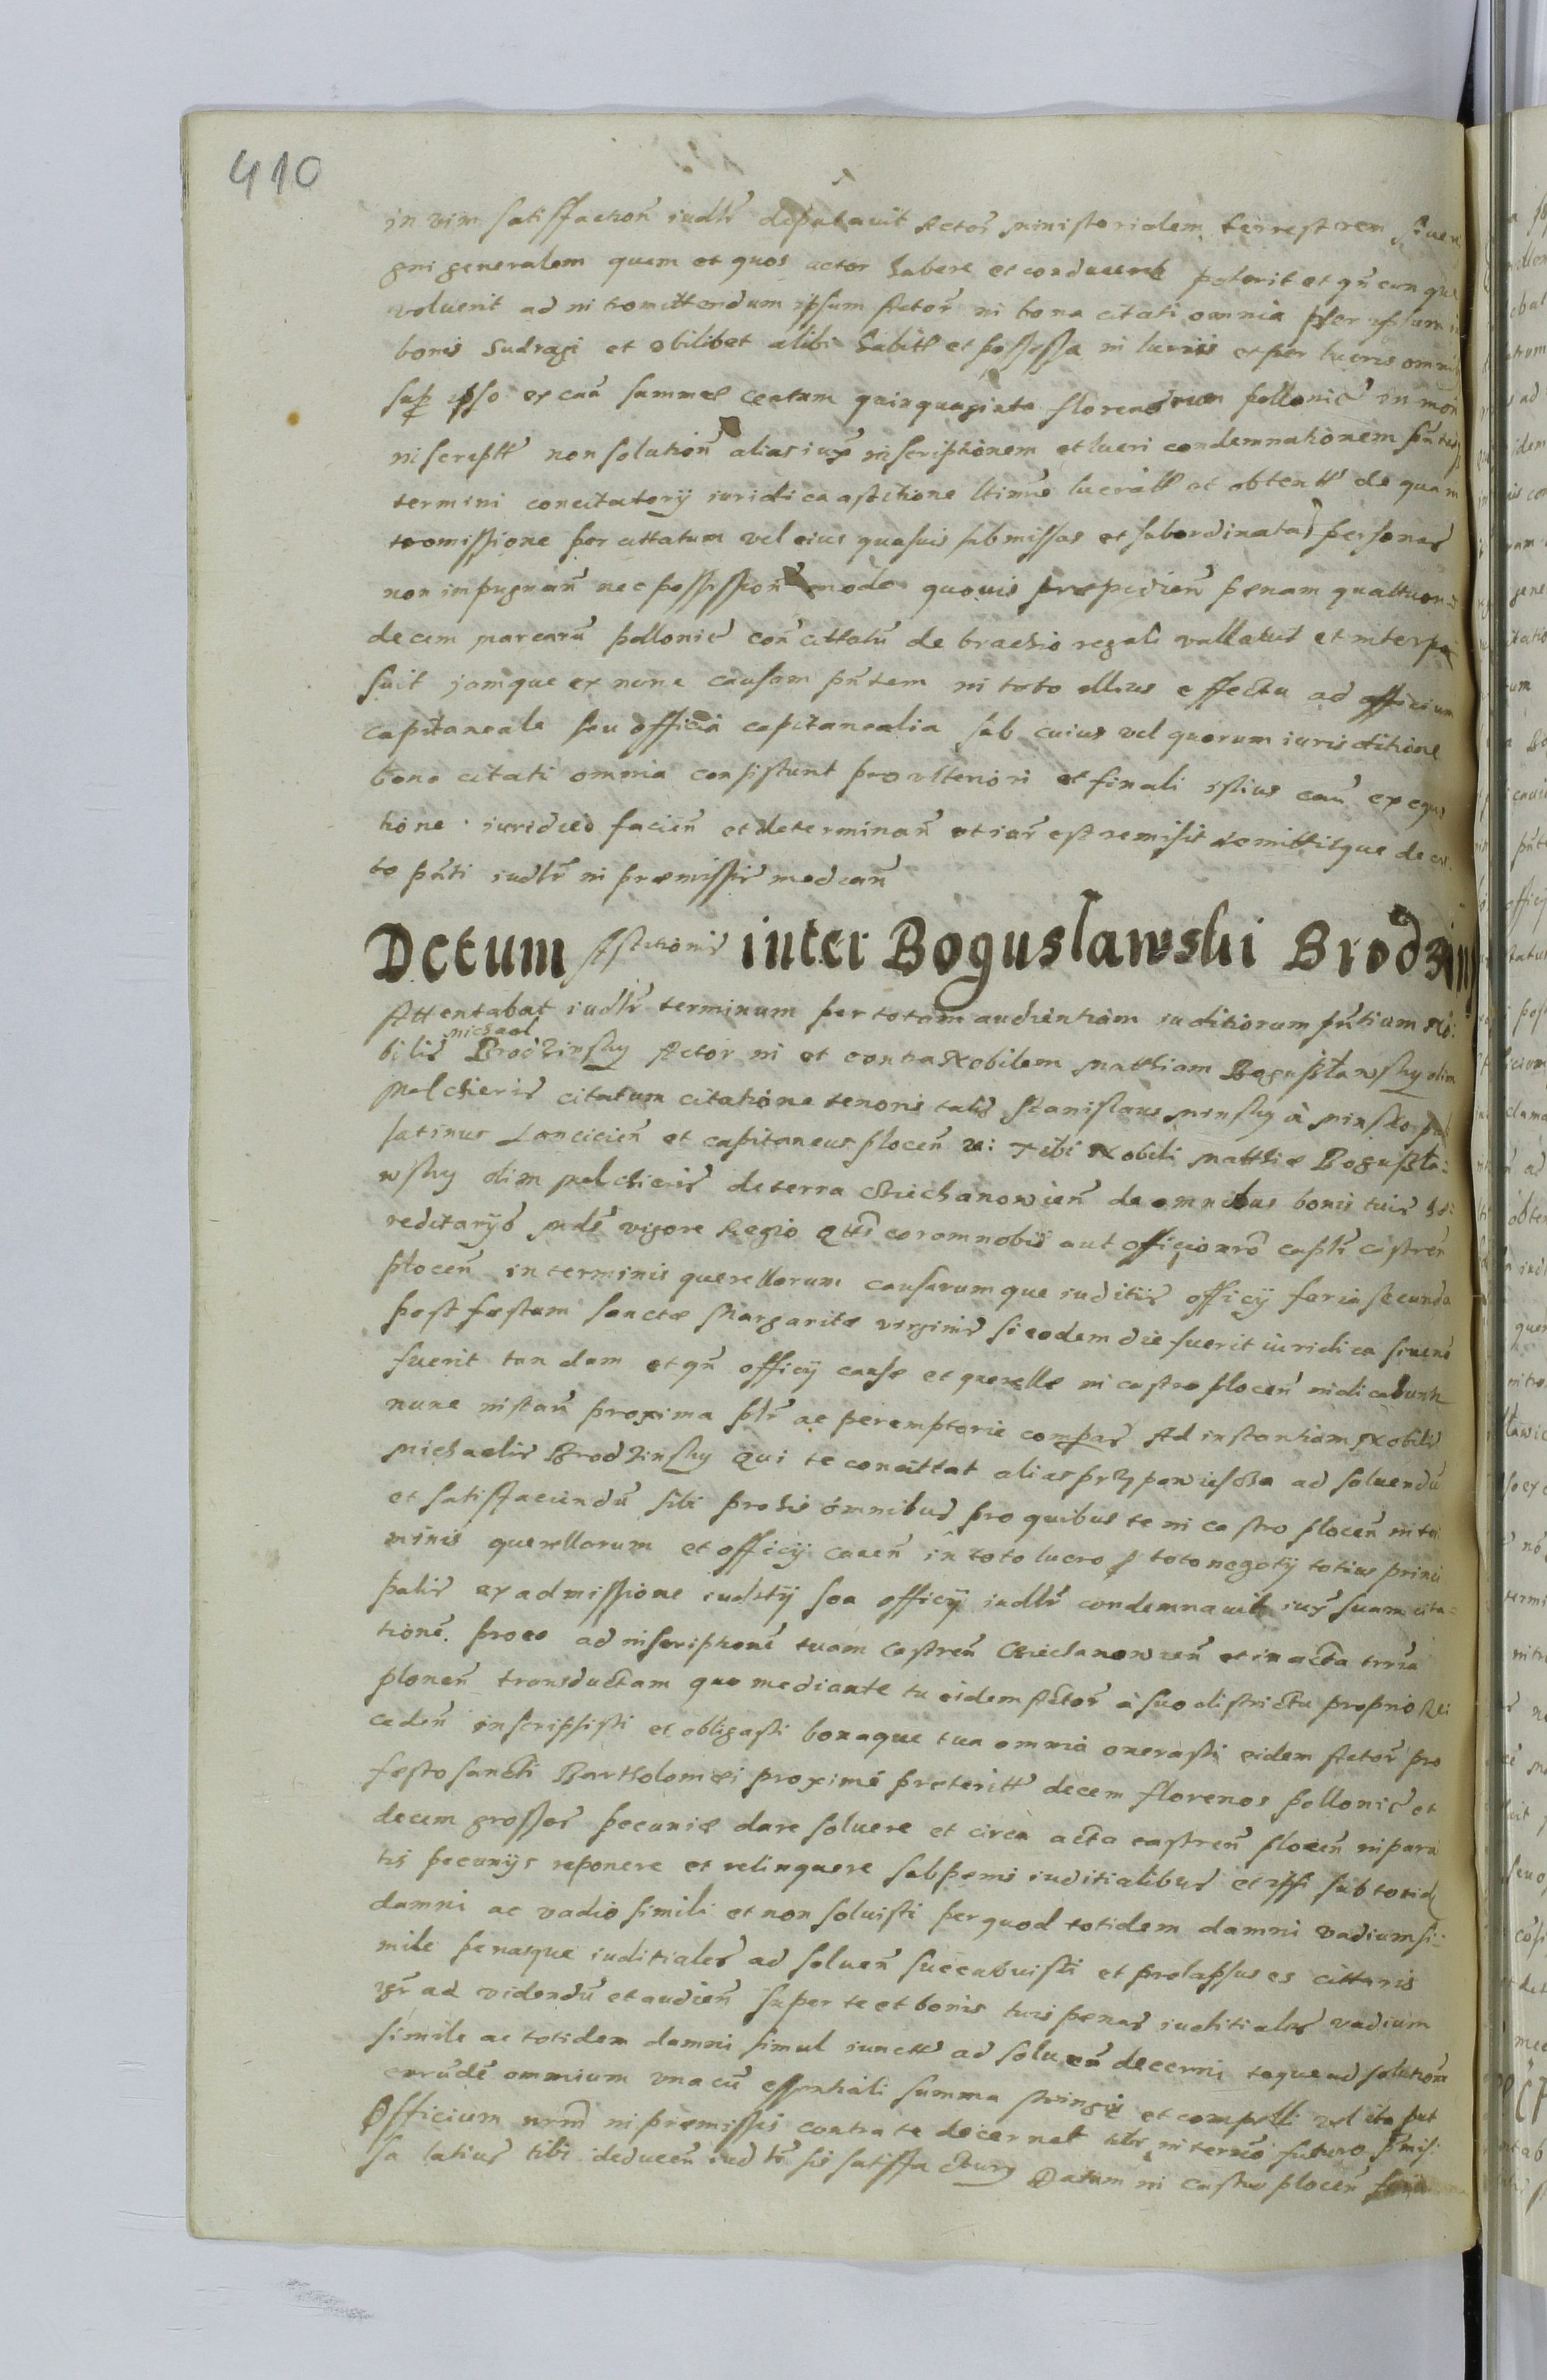 410
in vim satisffaction iudlr deputavit Actor ministerialem terrestrem siue re
gni generalem quem et quos actor habere et conducere poterit et qn cunque
voluerit ad intromittendum ipsum Actor in bona citati omnia per ipsum in
bonis Sudragi et vbilibet alibi habitt et possessa in lucris et per lucris omnib
sup ipso ex caa summae centum quinquaginta florenorum pollonic in mon
inscriptt non solution alias iux inscriptionem et lucri condemnationem pntis
termini concitatorij iuridica astitione ltimae lucratt et obtentt de qua in
tromissione per cittatum vel eius quasuis submissas et subordinatas personas
non impugnan nec possession modo quouis praepedien paenam quattuor
decem marcaru pollonic con cittatu de brachio regali vallauit et interpo
suit jamque ex nunc causam pntem in toto illius effectu ad officium
capitaneale seu officia capitanealia sub cuius vel quorum iurisditione
bona citati omnia consistunt pro vlteriori et finali istius cau exequ
tione iuridice facien et determinan et iur est remisit remittitque decre
to pnti iudlr in praemissis median
Dctum Astitionis inter Boguslawski Brodzin
Attentabat iudlr terminum per totam audientiam iuditiorum pntium No:
bilis michael Brodzinsky Actor in et contra Nobilem Matthiam Boguslawsky olim
Melchieris citatum citatione tenoris talis Stanislaus Minsky à Minsko pal
latinus Lancicien et capitaneus plocen &: Tibi Nobili Matthiae Bogusla:
wsky olim Melchieris de terra Ciechanowien de omnibus bonis tuis he
reditarijs mde vigore Regio qtts coram nobis aut officio nro captr castren
plocen in terminis querellarum causarumque iuditiis officij feria secunda
post festum sanctae Margaritae virginis si eodem die fuerit iuridica siue no
fuerit tandem et qn officij causae et querellae in castro plocen iudicabunt
nunc instan proxima pltr ac peremptorie compas Ad instantiam Nobilis
Michaelis Brodzinsky Qui te concittat alias przypowiesdza ad soluendu
et satisffaciendu sibi pro his omnibus pro quibus te in castro plocen in ter
minis querellarum et officij cauen in toto lucro toto negotij totius princi
palis ex admissione iuditij seu officij iudlr condemnauit iux suam cita
tione. pro eo ad inscriptione tuam Castren Ciechanowien et in acta trria
plonen transductam quo mediante tu eidem Actor à suo districtu proprio Re
ceden inscripsisti et obligasti bonaque tua omnia onerasti eidem Actor pro
festo sancti Bartholomaei proximè preteritt decem florenos pollonic et
decem grossos pecuniae dare soluere et circa acta castren plocen in para
tis pecunijs reponere et relinquere sub paenis iuditialibus et ipsi sub totid
damni ac vadio simili et non soluisti per quod totidem damni vadium si:
mile penasque iuditiales ad soluen succubuisti et prolapsus es cittaris
igr ad videndu et audien super te et bonis tuis paenas iuditiales vadium
simile ac totidem damni simul iunctt ad soluen decerni teque ad solution
earude omnium vna cu essentiali summa stringi et compelli vel ita put
Officium nrm in praemissis contra te decernet tibi in termo futuro pmis:
sa latius tibi deducen iudlr sis satisffacturus Datum in castro plocen